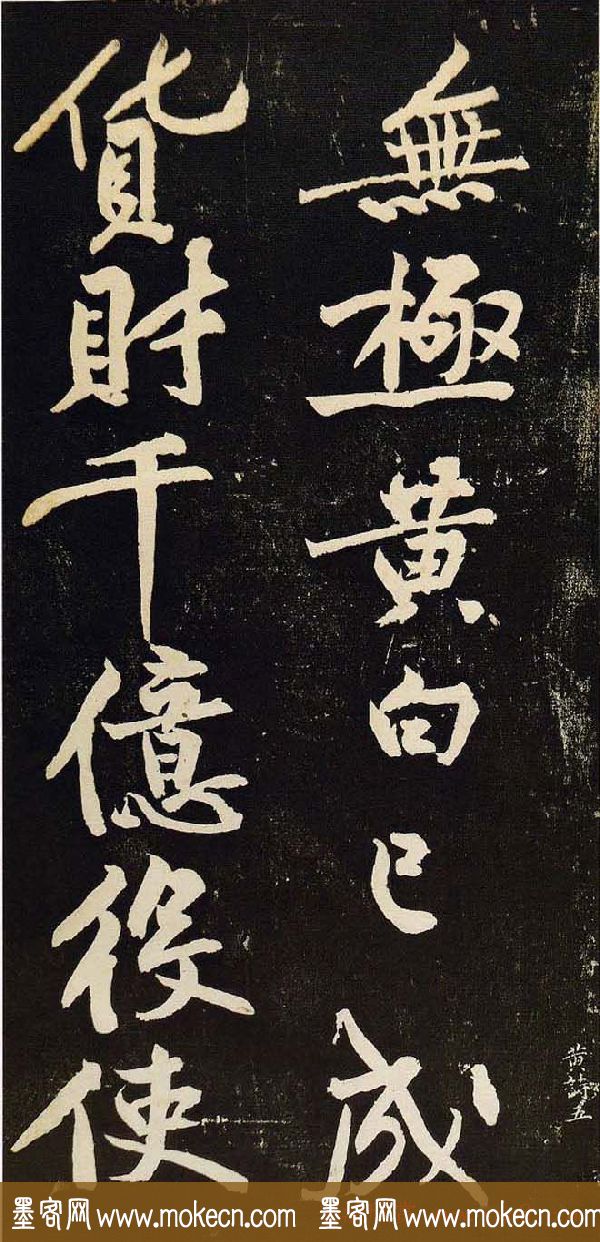 無極黄白已成
貨財千億役使
黄詩五
墨客网 www.mokecn.com 墨客网 www.mokecn.com